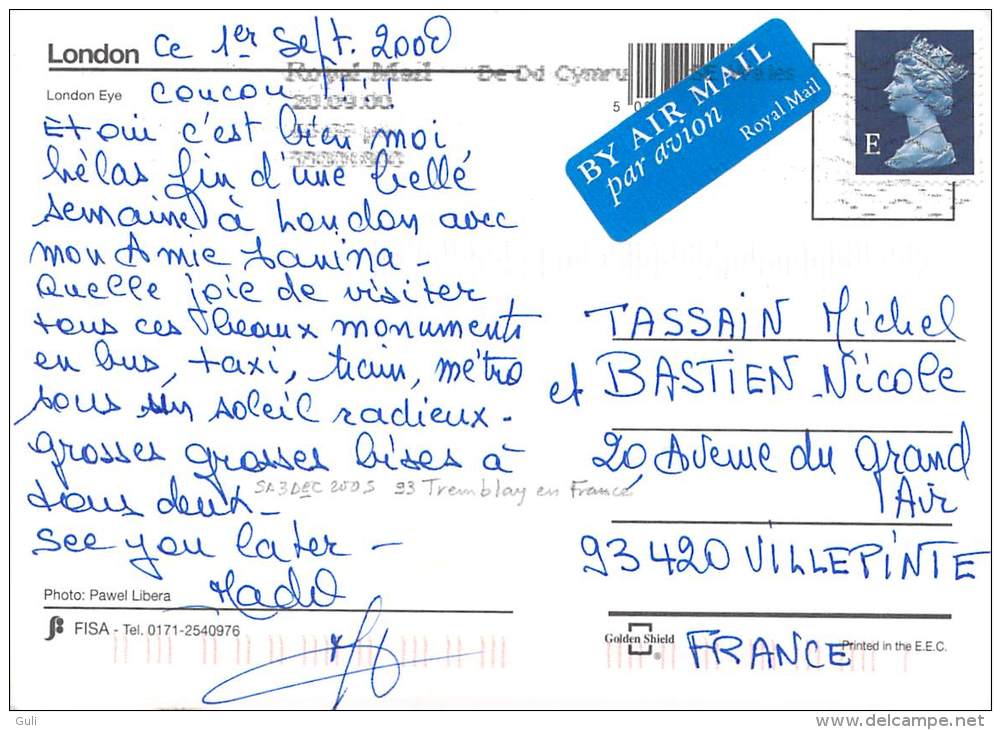 London
ce 1er Sept. 2000
London Eye
coucou !!!
Et oui c'est bien moi,
hélas fin d'une belle
semaine à London avec
mon Amie Janina -
Quelle joie de visiter
tous ces beaux monuments
en bus, taxi, train, métro
sous un soleil radieux -
grosses grosses bises à
tous deux -
SA 3 DEC 2005 93 Tremblay en France
See you later -
Photo: Pawel Libera
FISA - Tel. 0171-2540976
Royal Mail
20.09.00
BY AIR MAIL
par avion
Royal Mail
E
TASSAIN Michel
et BASTIEN Nicole
20, Avenue du Grand
Air
93420 VILLEPINTE
FRANCE
Golden Shield
®
Printed in the E.E.C.
Guli
delcampe.net